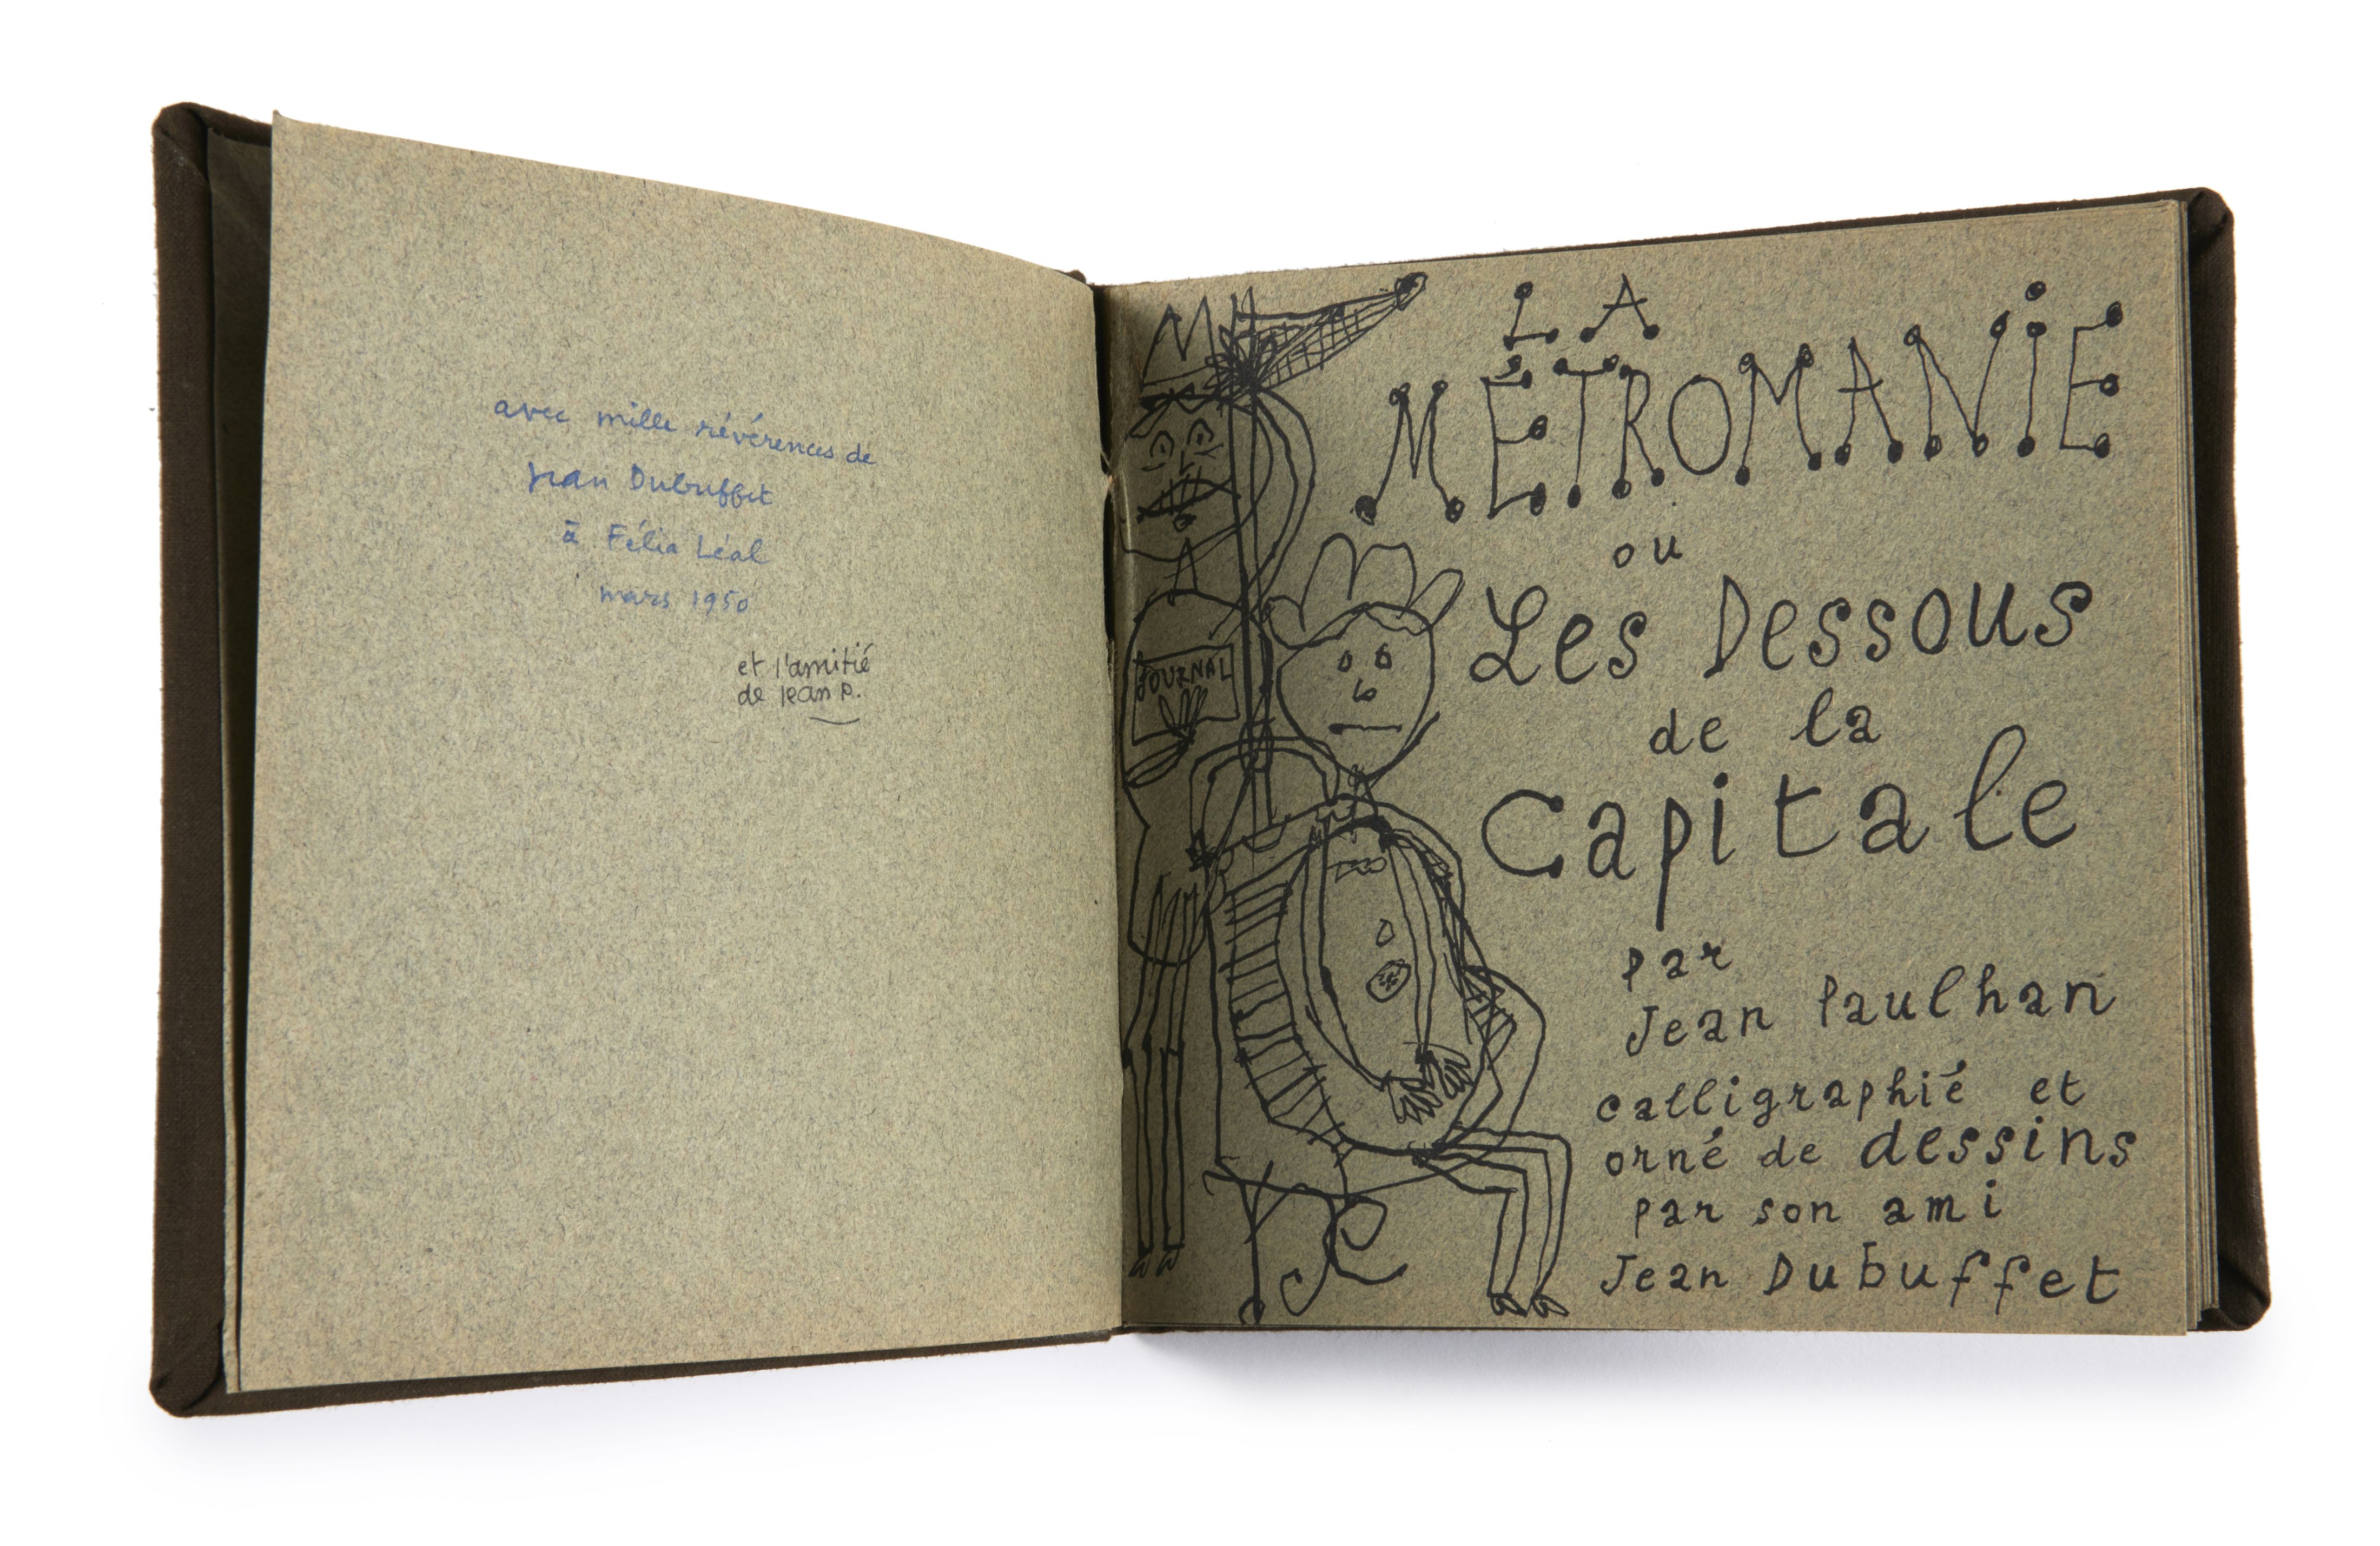 avec mille révérences de
Jean Dubuffet
à Félia Léal
mars 1950
et l'amitié
de Jean P.
LA
MÉTROMANIE
ou
Les Dessous
de la
Capitale
par
Jean Paulhan
calligraphié et
orné de dessins
par son ami
Jean Dubuffet
JOURNAL